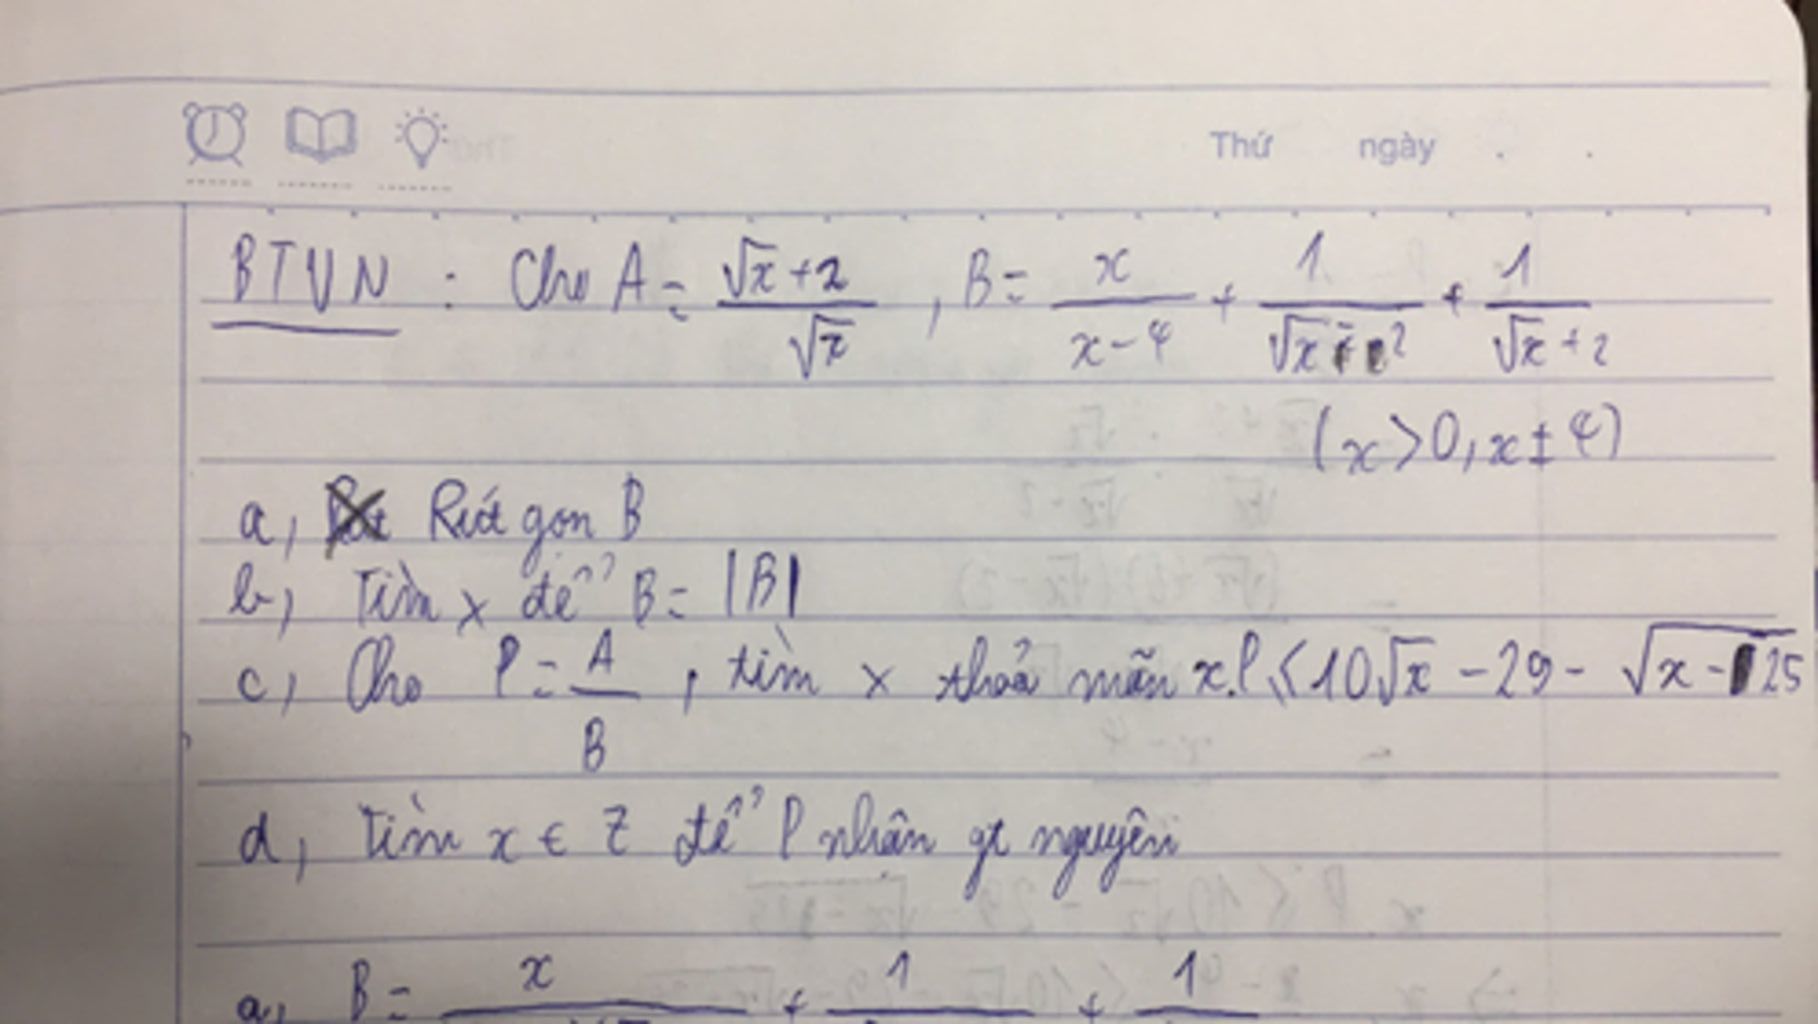 Thứ ngày . .
BTVN : Cho A = (√x + 2)/√x , B = x/(x - 4) + 1/(√x - 2) + 1/(√x + 2)
(x > 0, x ± 4)
a, Rút gọn B
b, Tìm x để B = |B|
c, Cho P = A/B , tìm x thoả mãn x.P ≤ 10√x - 29 - √(x - 25)
d, Tìm x ∈ Z để P nhận gt nguyên
a, B = x + 1 + 1